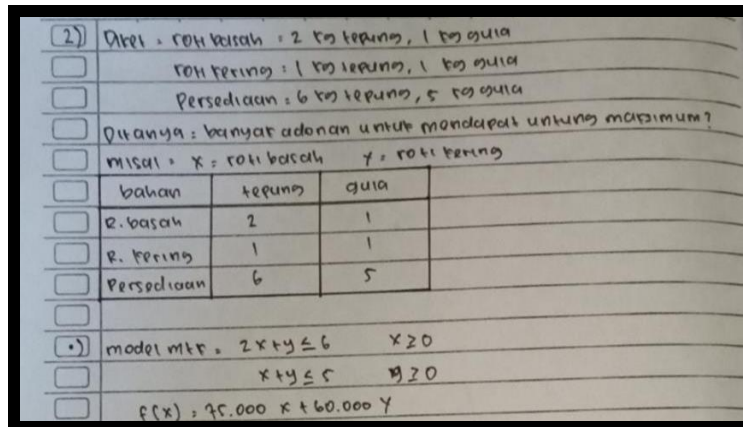 2) Diket : roti basah : 2 kg tepung, 1 kg gula
roti kering : 1 kg tepung, 1 kg gula
Persediaan : 6 kg tepung, 5 kg gula
Ditanya : banyak adonan untuk mendapat untung maksimum?
misal : x = roti basah y = roti kering
bahan tepung gula
R. basah 2 1
R. kering 1 1
Persediaan 6 5
•) model mtk : 2x+y ≤ 6 x ≥ 0
x+y ≤ 5 y ≥ 0
f(x) : 75.000 x + 60.000 y